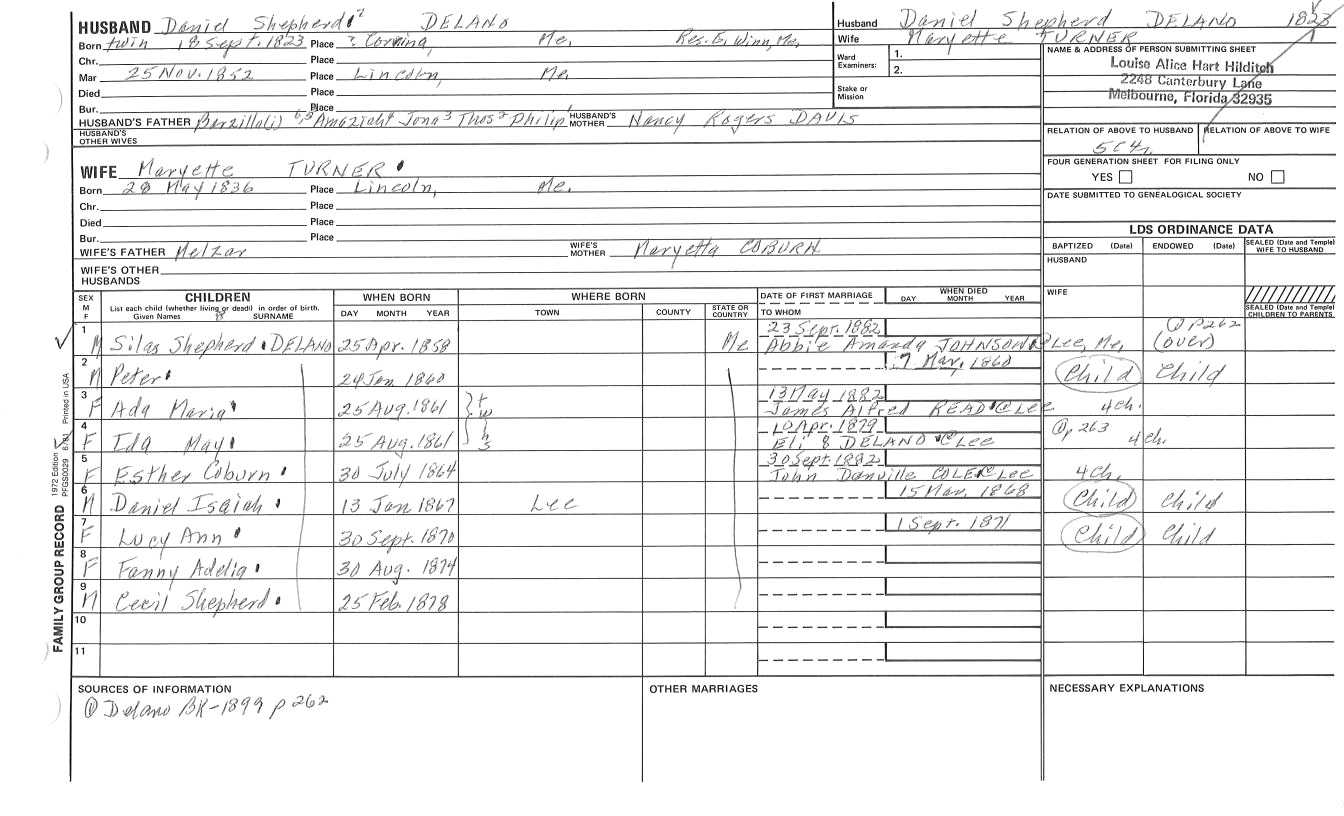 HUSBAND Daniel Shepherd 7 DELANO
Born twin 18 Sept. 1823 Place ? Corrina, Me. Res. E. Winn, Me,
Chr. Place
Mar 25 Nov. 1852 Place Lincoln, Me,
Died Place
Bur. Place
HUSBAND'S FATHER Barzilla(i) 6,5 Amaziah 4 Jona 3 Thos 2 Philip 1 HUSBAND'S MOTHER Nancy Rogers DAVIS
HUSBAND'S OTHER WIVES
WIFE Maryette TURNER
Born May 1836 Place Lincoln, Me.
Chr. Place
Died Place
Bur. Place
WIFE'S FATHER Melzar WIFE'S MOTHER Maryetta COBURN
WIFE'S OTHER HUSBANDS
Husband Daniel Shepherd DELANO 1823
Wife Maryette TURNER
Ward Examiners: 1.
2.
Stake or Mission
NAME & ADDRESS OF PERSON SUBMITTING SHEET
Louise Alice Hart Hilditch
2248 Canterbury Lane
Melbourne, Florida 32935
RELATION OF ABOVE TO HUSBAND RELATION OF ABOVE TO WIFE
5C4r
FOUR GENERATION SHEET FOR FILING ONLY
YES NO
DATE SUBMITTED TO GENEALOGICAL SOCIETY
LDS ORDINANCE DATA
BAPTIZED (Date) ENDOWED (Date) SEALED (Date and Temple) WIFE TO HUSBAND
HUSBAND
WIFE
SEALED (Date and Temple) CHILDREN TO PARENTS
SEX M F CHILDREN WHEN BORN WHERE BORN DATE OF FIRST MARRIAGE WHEN DIED
List each child (whether living or dead) in order of birth. DAY MONTH YEAR TOWN COUNTY STATE OR COUNTRY TO WHOM DAY MONTH YEAR
Given Names SURNAME
1 23 Sept. 1882 @ p262
M Silas Shepherd DELANO 25 Apr. 1858 Me Abbie Amanda JOHNSON @ Lee, Me, (over)
2 7 Mar. 1860
M Peter 24 Jan 1860 Child Child
3 13 May 1882
F Ada Maria 25 Aug. 1861 tw James Alfred READ @ Lee 4ch.
4 10 Apr. 1879 @p 263
F Ida May 25 Aug. 1861 ns Eli 8 DELANO @ Lee 4ch.
5 30 Sept. 1882
F Esther Coburn 30 July 1864 John Danville COLE @ Lee 4ch.
6 15 Mar. 1868
M Daniel Isaiah 13 Jan 1867 Lee Child Child
7 1 Sept. 1871
F Lucy Ann 30 Sept. 1870 Child Child
8
F Fanny Adelia 30 Aug. 1874
9
M Cecil Shepherd 25 Feb. 1878
10
11
SOURCES OF INFORMATION OTHER MARRIAGES NECESSARY EXPLANATIONS
① Delano BK-1899 p 262
FAMILY GROUP RECORD 1972 Edition PFGS0029 6/81 Printed in USA